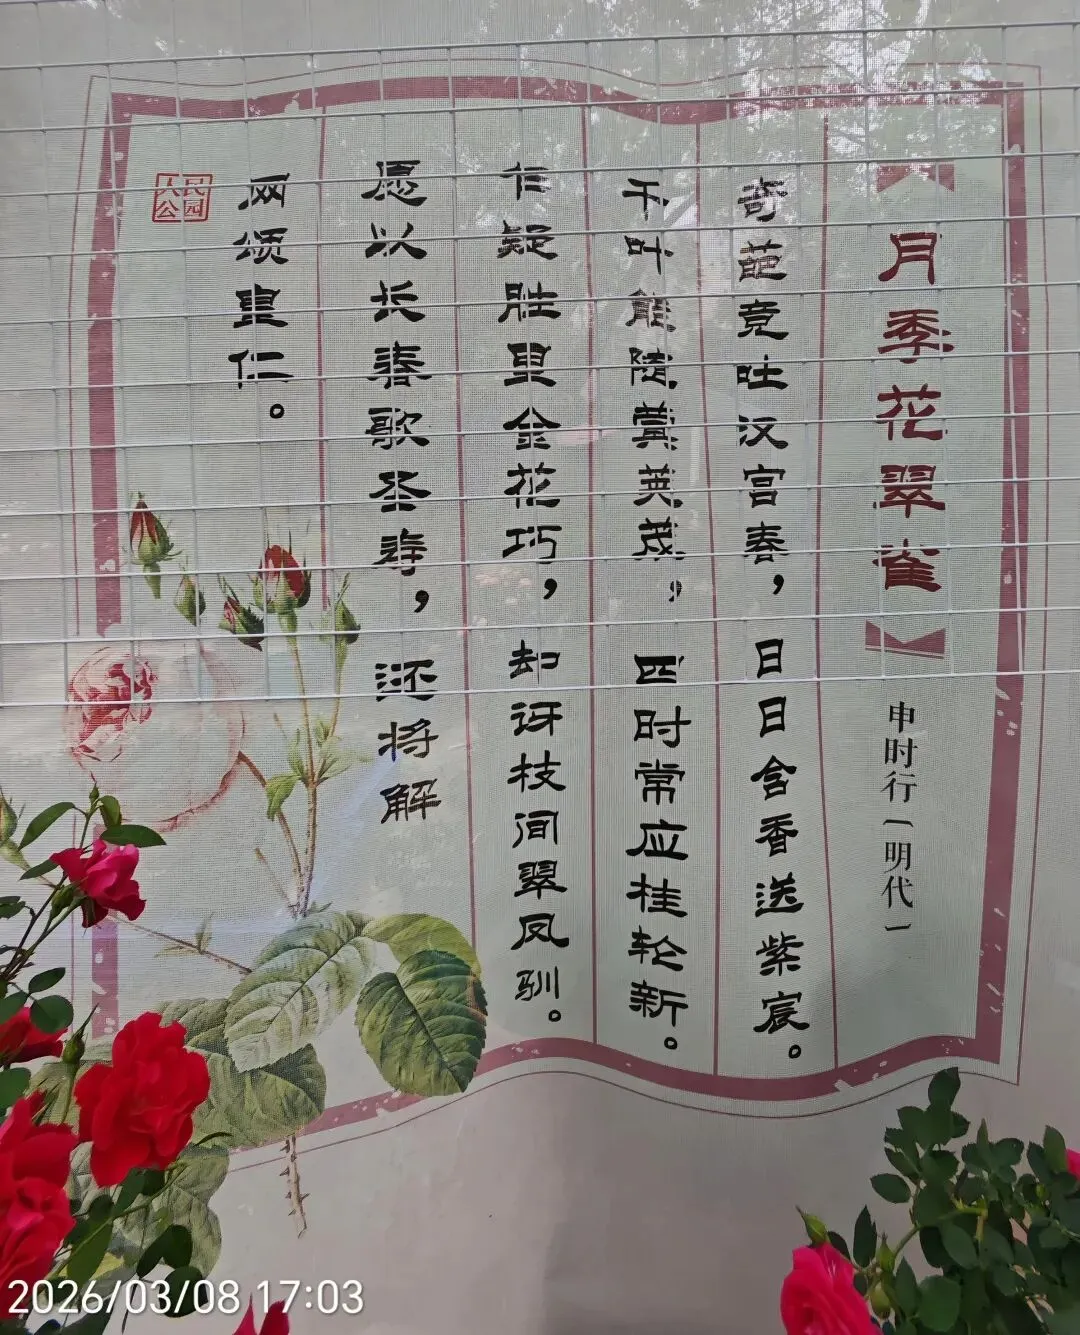 月季花翠雀
申时行（明代）
奇葩竞吐汉宫春，日日含香送紫宸。
千叶能随蓂荚茂，四时常应桂轮新。
乍疑胜里金花巧，却讶枝间翠凤驯。
愿以长春歌圣寿，还将解
网颂皇仁。
人民公园
2026/03/08 17:03